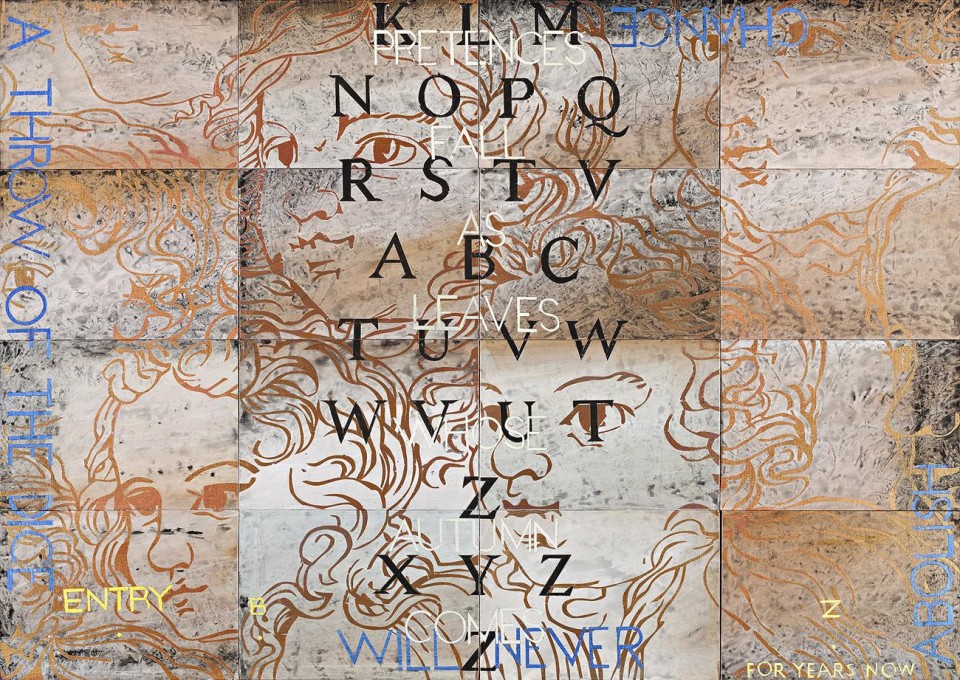 A THROW OF THE DICE
WILL NEVER
ABOLISH
CHANCE
K L M
PRETENCES
N O P Q
FALL
R S T V
AS
A B C
LEAVES
T U V W
W V U T
WHOSE
Z
AUTUMN
X Y Z
COMES
Z
ENTRY
B
Z
FOR YEARS NOW